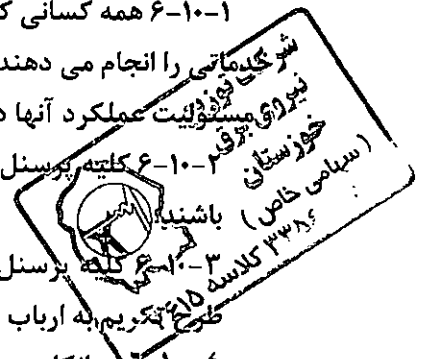 ۶-۱۰-۱ همه کسانی ک
خدماتی را انجام می دهند
مسئولیت عملکرد آنها د
۶-۱۰-۲ کلیه پرسنل
باشند
۶-۱۰-۳ کلیه پرسنل
طرح تکریم به ارباب
شرکت توزیع
نیروی برق
خوزستان
(سهامی خاص)